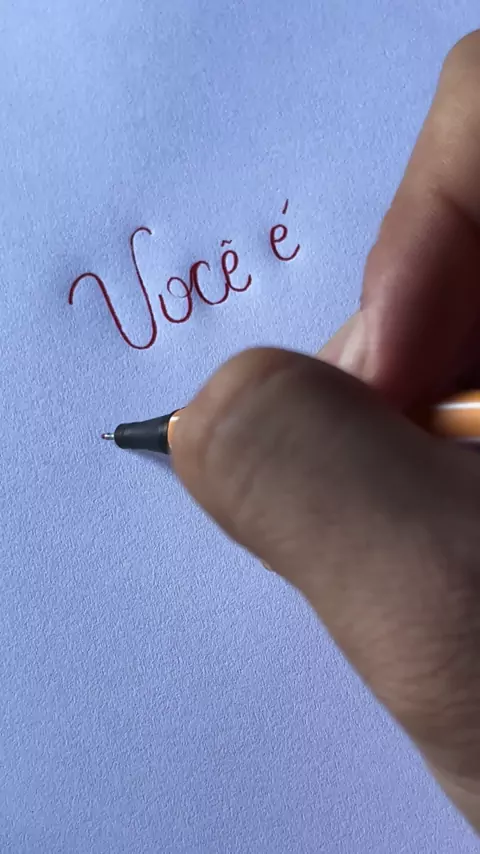 Você é